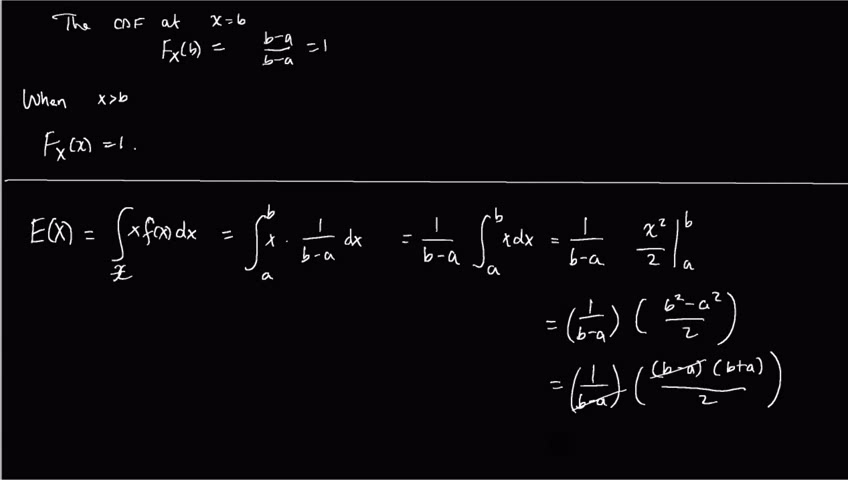 The CDF at x=b
F_X(b) = \frac{b-a}{b-a} = 1
When x>b
F_X(x) = 1.
E(X) = \int_{x} x f(x) dx = \int_a^b x \cdot \frac{1}{b-a} dx = \frac{1}{b-a} \int_a^b x dx = \frac{1}{b-a} \frac{x^2}{2} |_a^b
= (\frac{1}{b-a}) (\frac{b^2-a^2}{2})
= (\frac{1}{b-a}) (\frac{(b-a)(b+a)}{2})